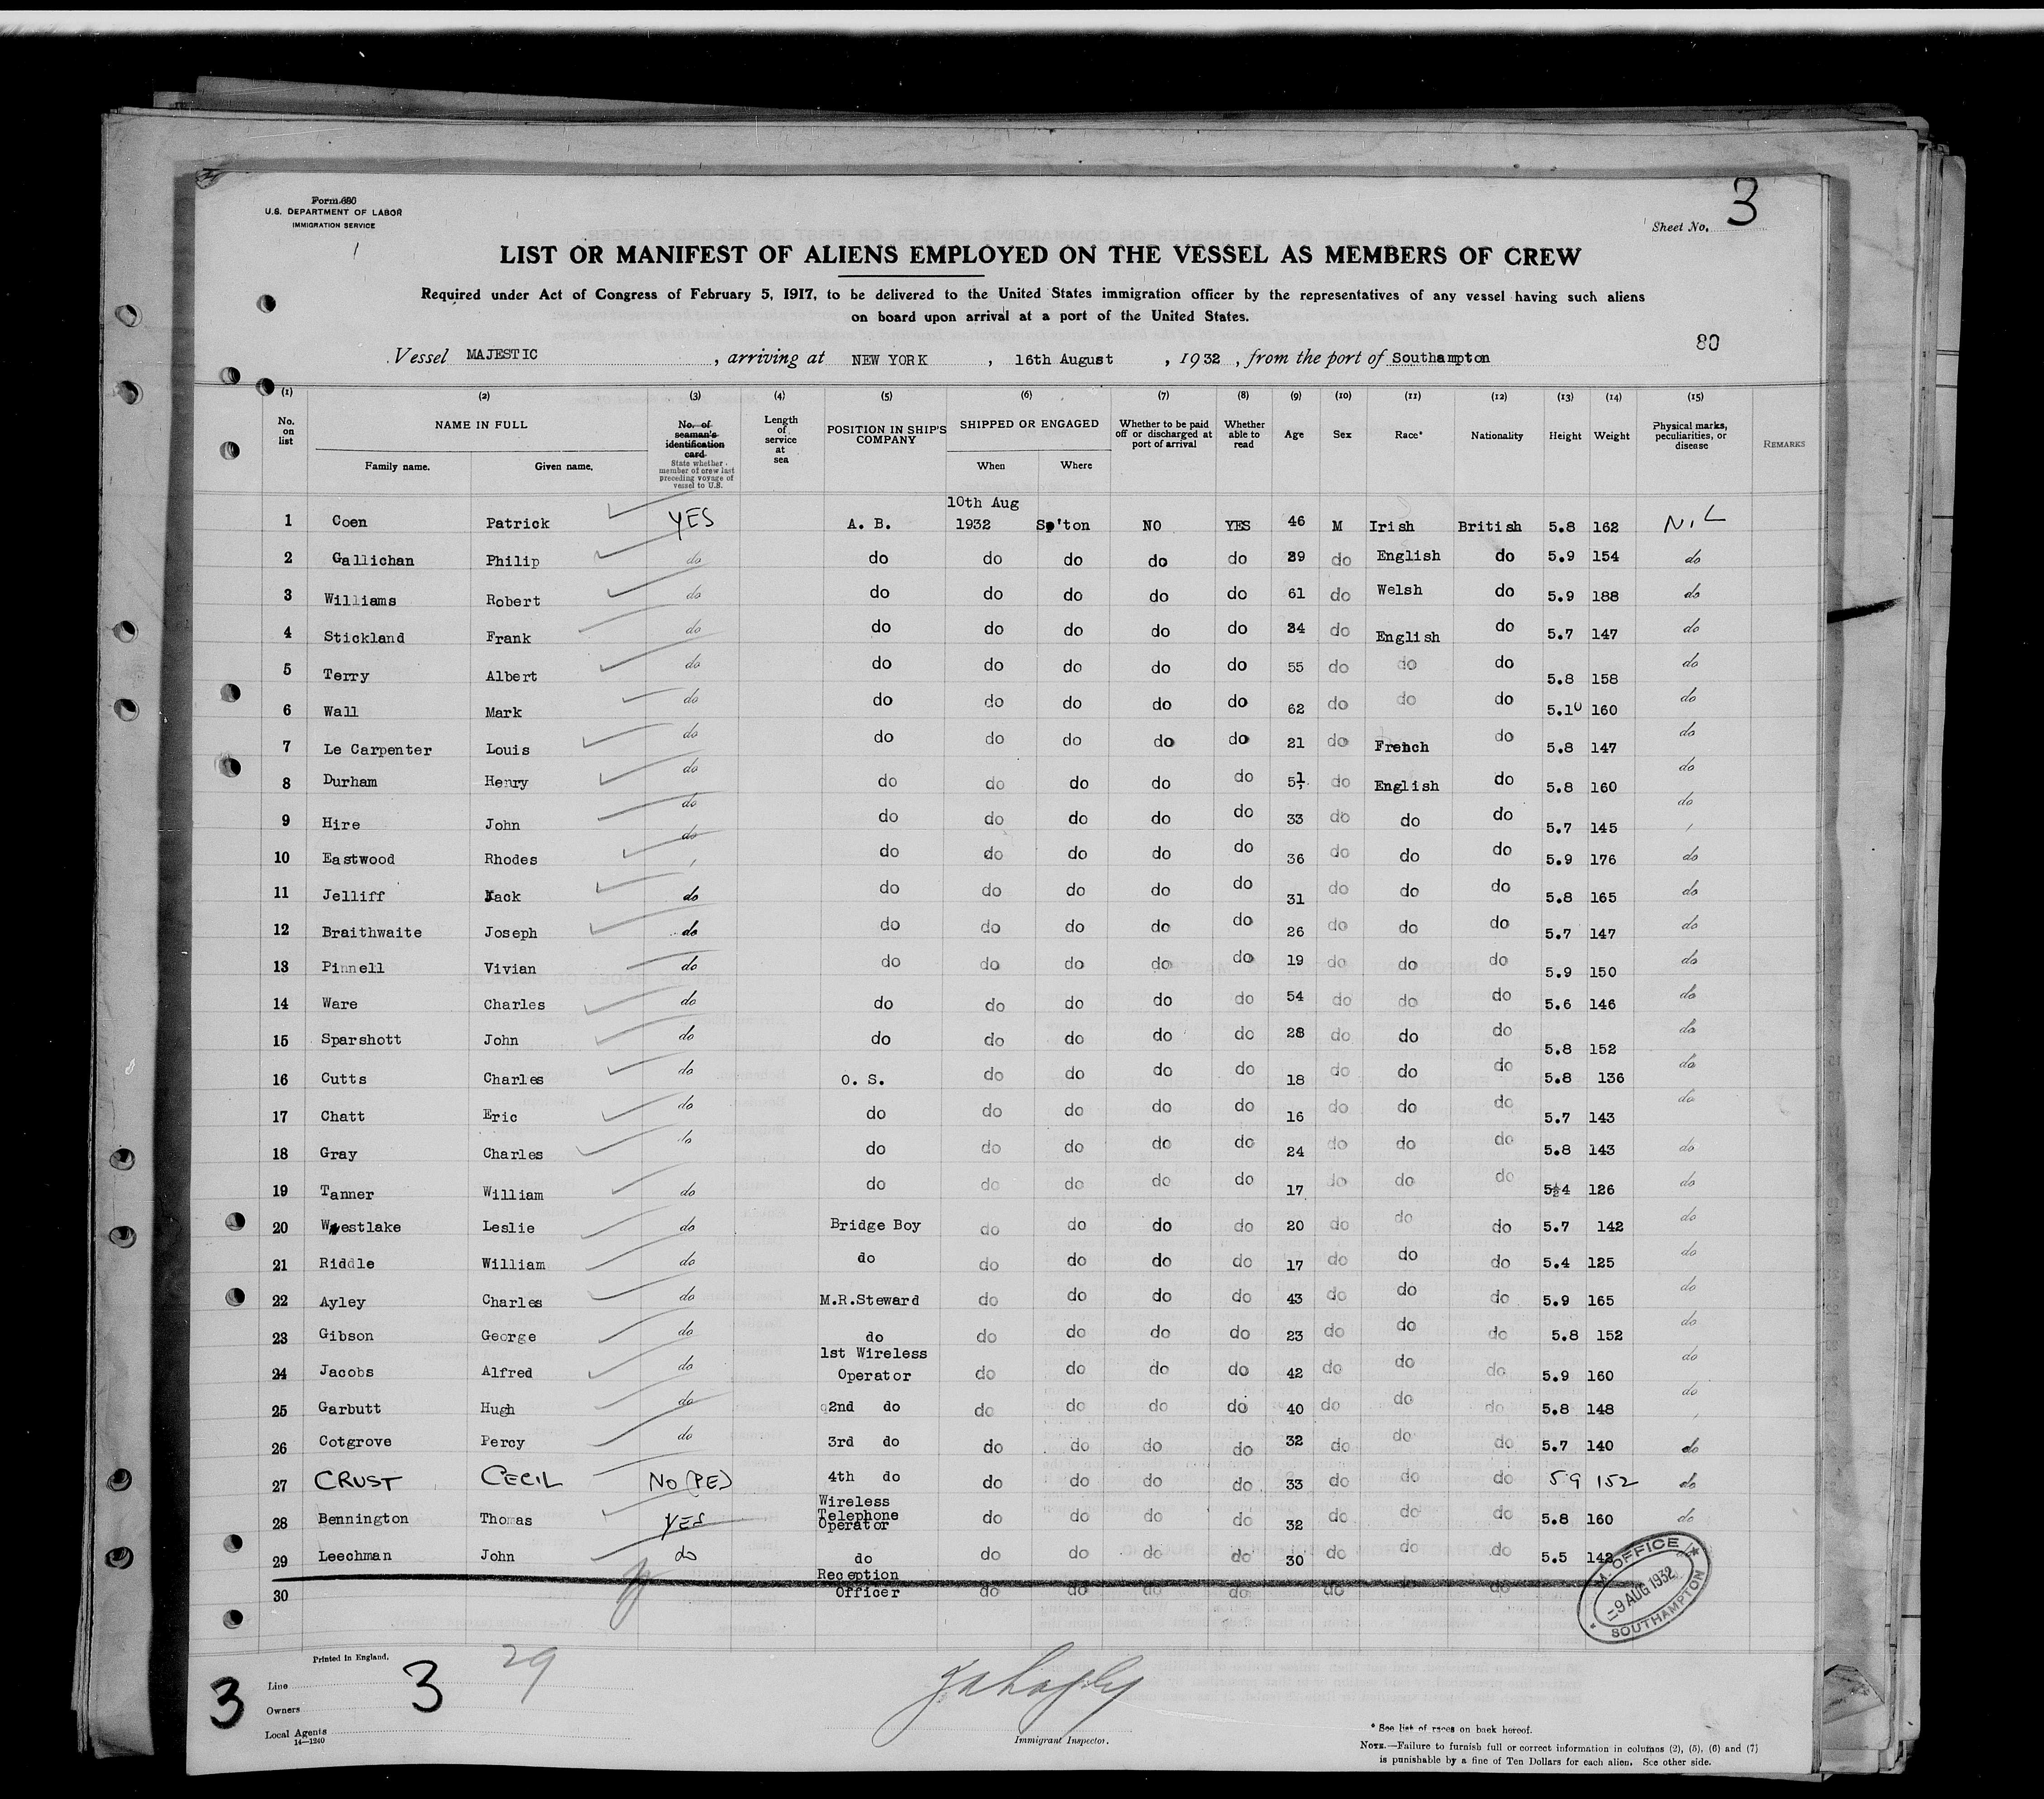 Form 680
U.S. DEPARTMENT OF LABOR
IMMIGRATION SERVICE
Sheet No. 3
LIST OR MANIFEST OF ALIENS EMPLOYED ON THE VESSEL AS MEMBERS OF CREW
Required under Act of Congress of February 5, 1917, to be delivered to the United States immigration officer by the representatives of any vessel having such aliens
on board upon arrival at a port of the United States.
80
Vessel MAJESTIC, arriving at NEW YORK, 16th August, 1932, from the port of Southampton
(1) (2) (3) (4) (5) (6) (7) (8) (9) (10) (11) (12) (13) (14) (15)
No. on list NAME IN FULL Family name. Given name. No. of seaman's identification card State whether member of crew last preceding voyage of vessel to U.S. Length of service at sea POSITION IN SHIP'S COMPANY SHIPPED OR ENGAGED When Where Whether to be paid off or discharged at port of arrival Whether able to read Age Sex Race* Nationality Height Weight Physical marks, peculiarities, or disease REMARKS
1 Coen Patrick YES A. B. 10th Aug 1932 So'ton NO YES 46 M Irish British 5.8 162 NIL
2 Gallichan Philip do do do do do do 39 do English do 5.9 154 do
3 Williams Robert do do do do do do 61 do Welsh do 5.9 188 do
4 Stickland Frank do do do do do do 34 do English do 5.7 147 do
5 Terry Albert do do do do do do 55 do do do 5.8 158 do
6 Wall Mark do do do do do do 62 do do do 5.10 160 do
7 Le Carpenter Louis do do do do do do 21 do French do 5.8 147 do
8 Durham Henry do do do do do do 51 do English do 5.8 160 do
9 Hire John do do do do do do 33 do do do 5.7 145 do
10 Eastwood Rhodes do do do do do do 36 do do do 5.9 176 do
11 Jelliff Jack do do do do do do 31 do do do 5.8 165 do
12 Braithwaite Joseph do do do do do do 26 do do do 5.7 147 do
13 Pinnell Vivian do do do do do do 19 do do do 5.9 150 do
14 Ware Charles do do do do do do 54 do do do 5.6 146 do
15 Sparshott John do do do do do do 28 do do do 5.8 152 do
16 Cutts Charles do O. S. do do do do 18 do do do 5.8 136 do
17 Chatt Eric do do do do do do 16 do do do 5.7 143 do
18 Gray Charles do do do do do do 24 do do do 5.8 143 do
19 Tanner William do do do do do do 17 do do do 5½4 126 do
20 Westlake Leslie do Bridge Boy do do do do 20 do do do 5.7 142 do
21 Riddle William do do do do do do 17 do do do 5.4 125 do
22 Ayley Charles do M.R.Steward do do do do 43 do do do 5.9 165 do
23 Gibson George do do do do do do 23 do do do 5.8 152 do
24 Jacobs Alfred do 1st Wireless Operator do do do do 42 do do do 5.9 160 do
25 Garbutt Hugh do 2nd do do do do do 40 do do do 5.8 148 do
26 Cotgrove Percy do 3rd do do do do do 32 do do do 5.7 140 do
27 CRUST CECIL NO (PE) 4th do do do do do 33 do do do 5.9 152 do
28 Bennington Thomas YES Wireless Telephone Operator do do do do 32 do do do 5.8 160 do
29 Leechman John do do do do do do 30 do do do 5.5 142
30 Reception Officer do do do do do do do
M. OFFICE
9 AUG 1932
SOUTHAMPTON
Printed in England.
29
3
Line
3
Owners
Local Agents
14—1240
Immigrant Inspector.
* See list of races on back hereof.
NOTE.—Failure to furnish full or correct information in columns (2), (5), (6) and (7)
is punishable by a fine of Ten Dollars for each alien. See other side.